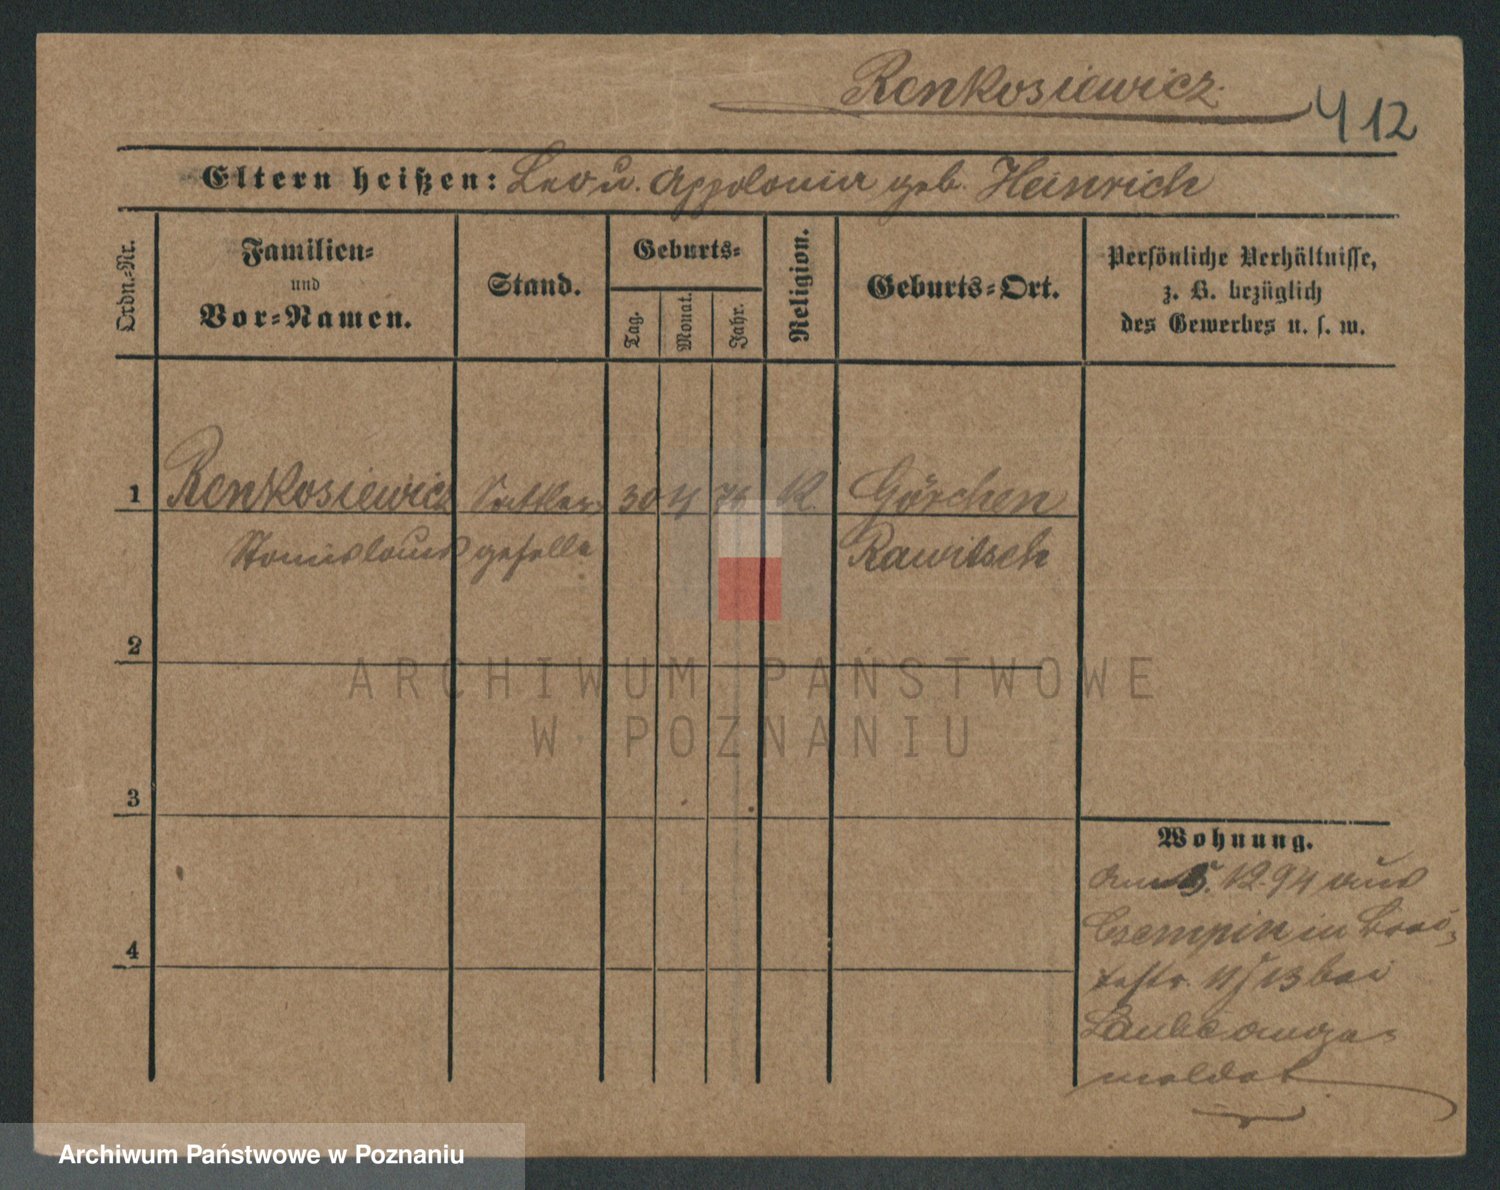 Renkosiewicz.
412
Eltern heißen: Leo u. Appolonia geb. Heinrich
Ordn.-Nr.
Familien-
und
Vor-Namen.
Stand.
Geburts-
Tag.
Monat.
Jahr.
Religion.
Geburts-Ort.
Persönliche Verhältnisse,
z. B. bezüglich
des Gewerbes u. s. w.
1 Renkosiewicz Sattler 30 4 76 K. Görchen
Stanislaus geselle Rawitsch
2
3
4
Wohnung.
Am 5. 12. 94 aus
Czempin in
11/13 bei
ange-
meldet
ARCHIWUM PAŃSTWOWE
W POZNANIU
Archiwum Państwowe w Poznaniu